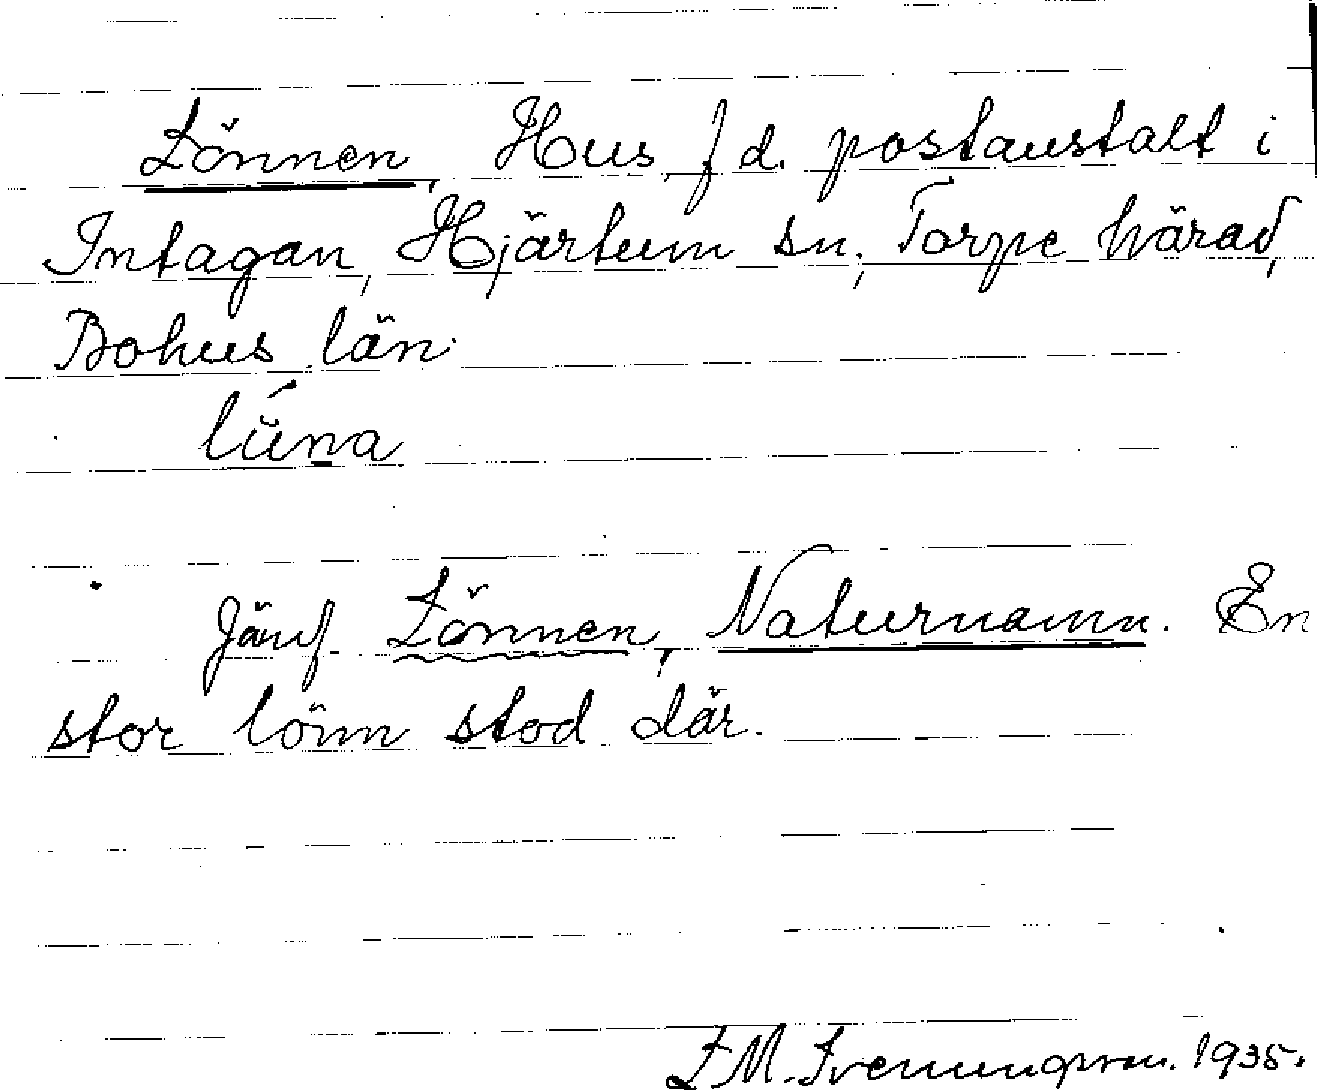 Lönnen, Hus, f d. postanstalt i
Intagan, Hjärtum sn; Torpe härad,
Bohus län.
lǘna
Jämf. Lönnen, Naturnamn. En
stor lönn stod där.
1935.